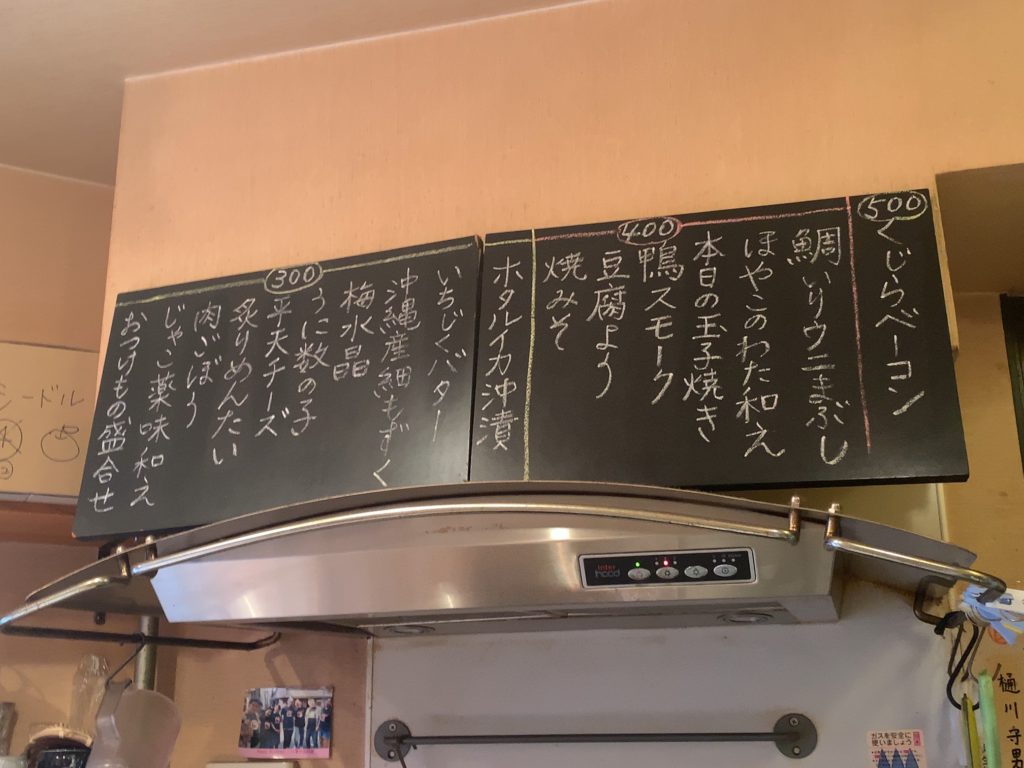 500
くじらベーコン
400
鯛いりウニまぶし
ほやこのわた和え
本日の玉子焼き
鴨スモーク
豆腐よう
焼みそ
300
ホタルイカ沖漬
いちじくバター
沖縄産細もずく
梅水晶
うに数の子
平夫チーズ
炙りめんたい
肉ごぼう
じゃこ薬味和え
おつけもの盛合せ
シードル
inter
hood
ガスを安全に
使いましょう
樋川守男